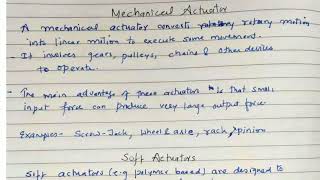 Mechanical Actuator
- A mechanical actuator converts rotary motion
into linear motion to execute some movement.
- It involves gears, pulleys, chains & other devices
to operate.
- The main advantage of these actuators is that small
input force can produce very large output force
Examples- Screw-Jack, wheel & axle, rack, pinion
Soft Actuators
Soft actuators (e.g polymer based) are designed to